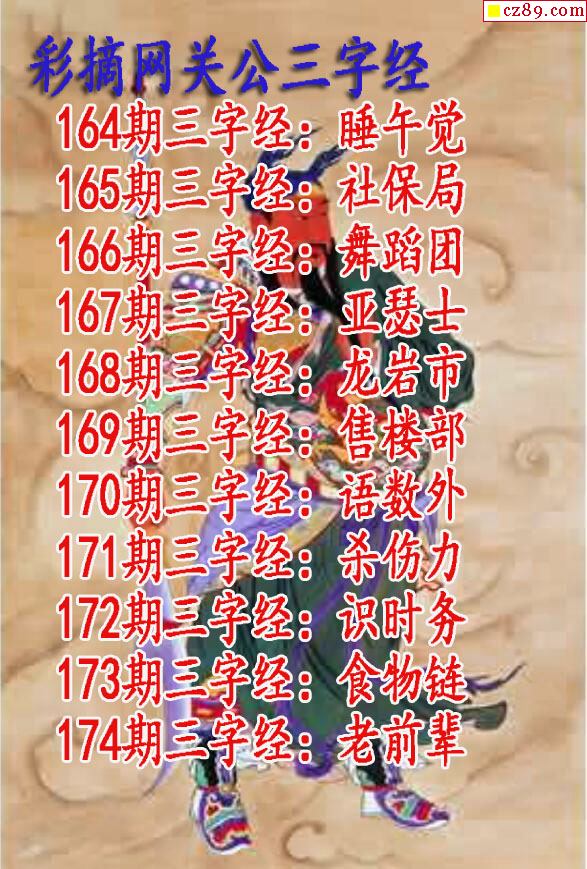 cz89.com
彩摘网关公三字经
164期三字经：睡午觉
165期三字经：社保局
166期三字经：舞蹈团
167期三字经：亚瑟士
168期三字经：龙岩市
169期三字经：售楼部
170期三字经：语数外
171期三字经：杀伤力
172期三字经：识时务
173期三字经：食物链
174期三字经：老前辈